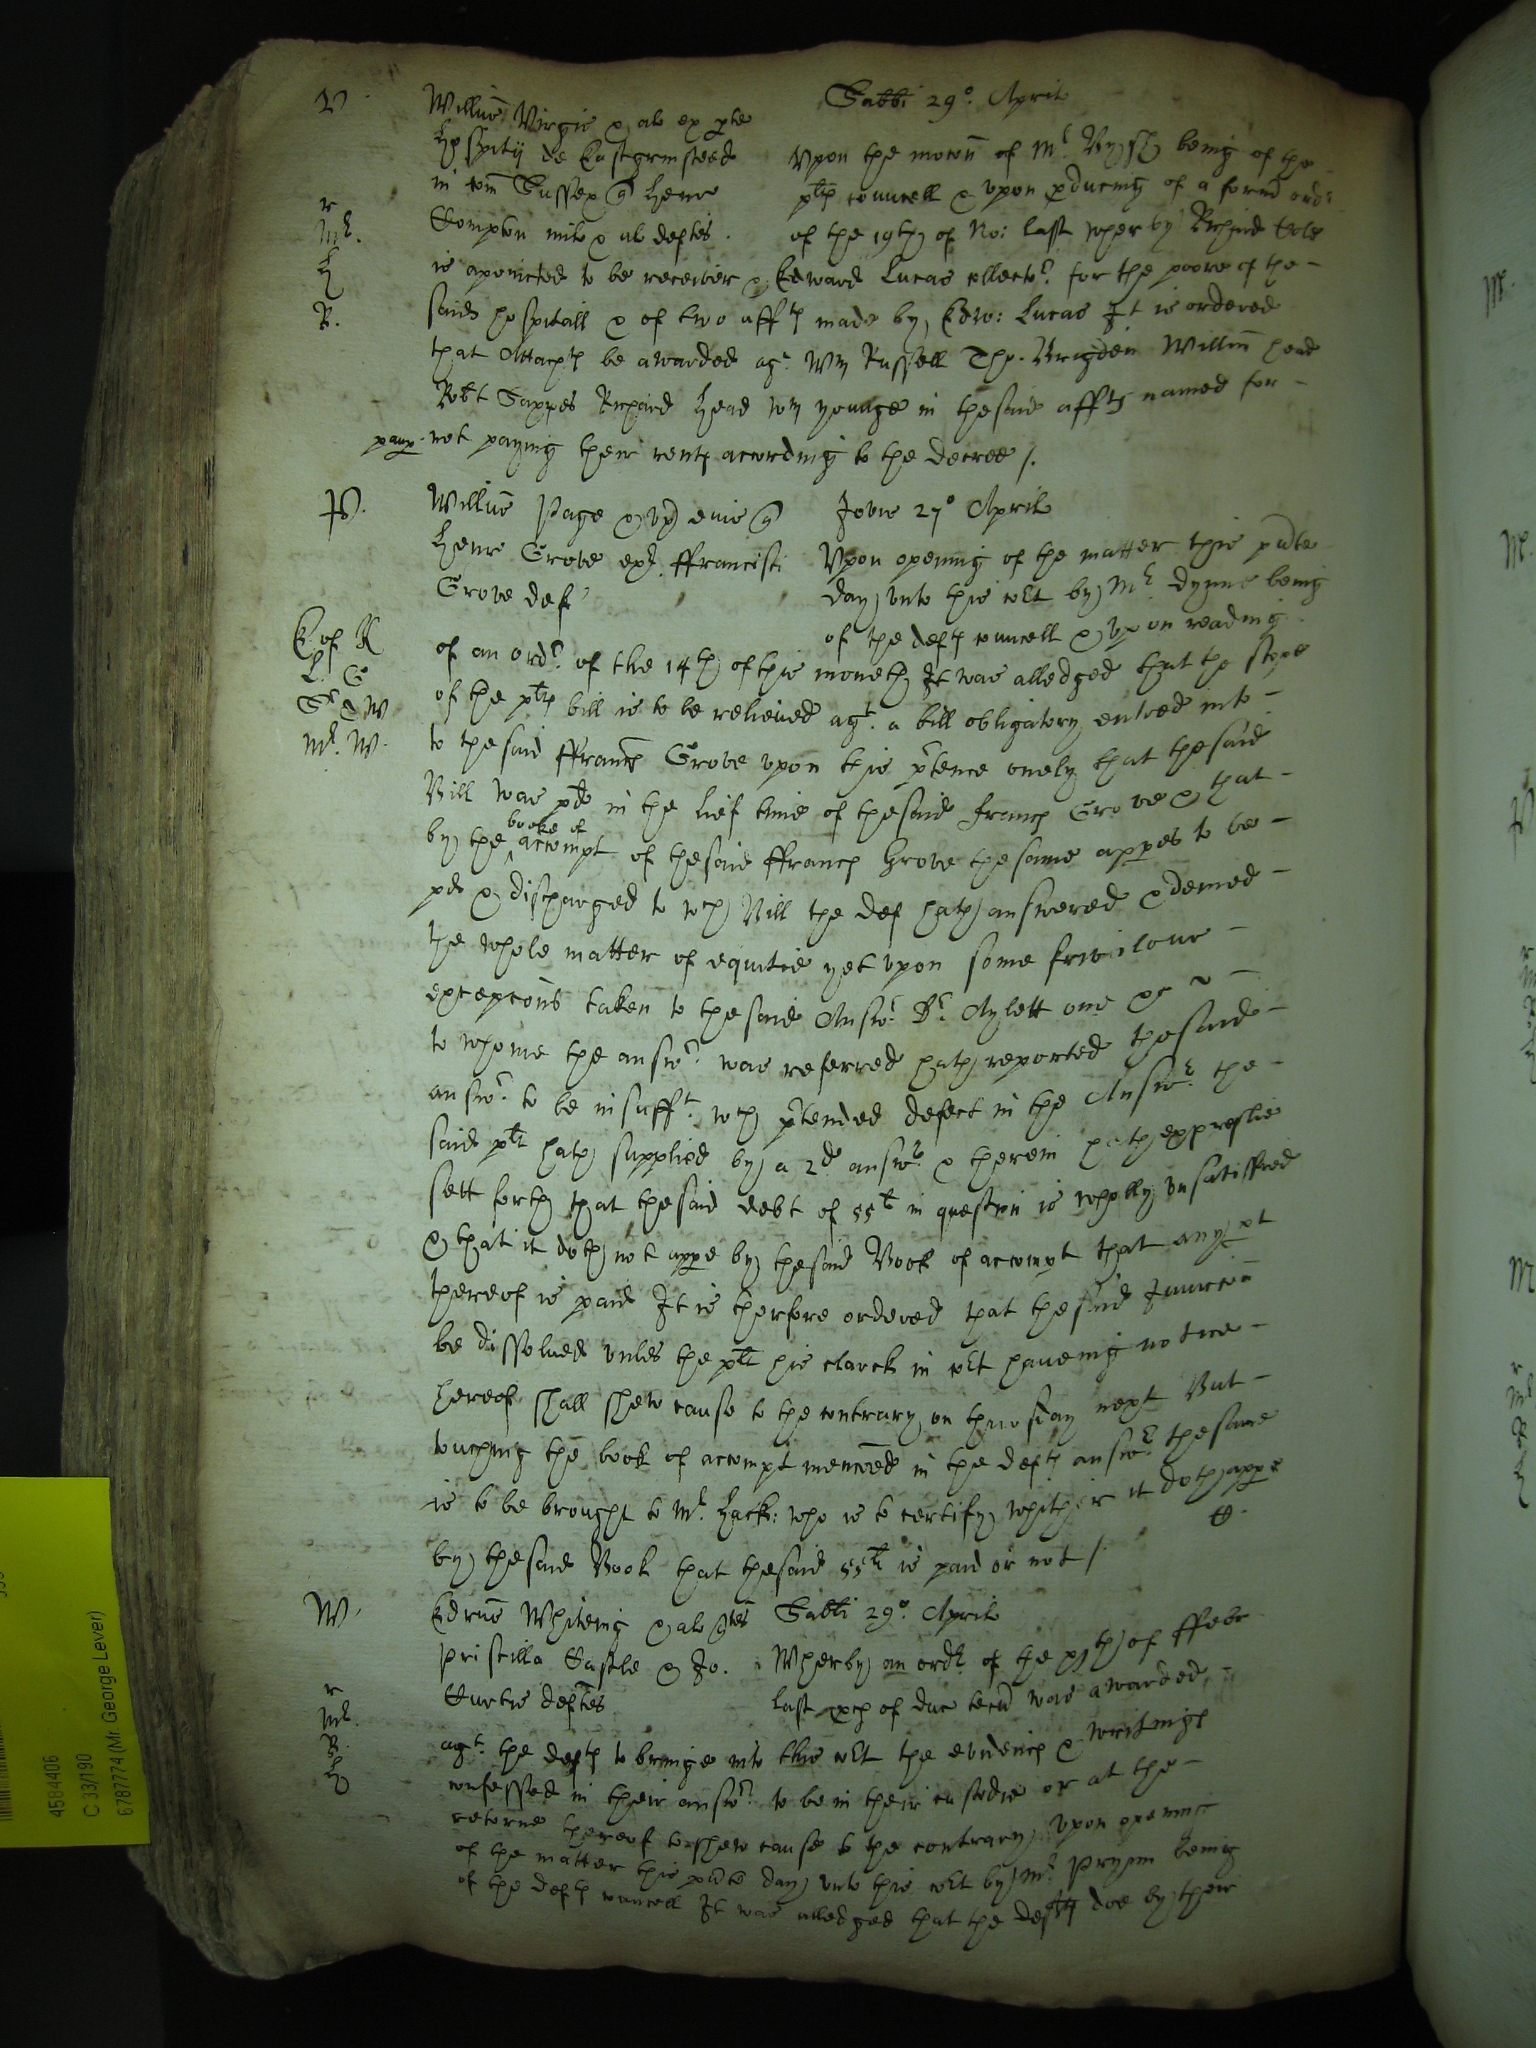 V.
Sabbi 29o. April
Willus Virgie & al ex pte
hospitij de Eastgrinsteed
in com Sussex q Henr
Compton milt & al deftes.
Upon the mocon of Mr. being of the
pltes councell & upon pducing of a former ordr
of the 19th of No: last wherby Richard Cole
r
Mr.
H
R.
is apointed to be receiver & Edward Lucas collector for the poore of the
said hospitall & of two affts made by Edw: Lucas It is ordered
that Attachmt be awarded agt Wm Russell Tho. Brigden Willm head
Robt Saxpes Richard Head Wm younge in the said affts named for
paup. not paying their rents according to the decree /.
P.
Willus Page & ux eius q
Henr Grove exr. ffrancisci
Grove def
Jovis 27o Aprilis
Upon opening of the matter this pnte
day unto this Crt by Mr. dynne being
of the defts councell & upon reading
E of K
L. C
Sr T W
Mr. W.
of an ordr. of the 14th of this moneth It was alledged that the scope
of the plts bill is to be relieved agt. a bill obligatory entred into
to the said ffrancs Grove upon this ptence onely that the said
Bill was pd in the lief time of the said francs Grove & that
by the booke of accompt of the said ffrancs Grove the same appes to be
pd & discharged to wch Bill the def hath answered & denied
the whole matter of equitie yet upon some frivilous
excepcons taken to the said Answr. Dr. Aylett one &c
to whome the answr. was referred hath reported the said
answr. to be insufft. wch ptended defect in the Answr. the
said plt hath supplied by a 2d answr & therein hath expreslie
sett forth that the said debt of 55li in question is wholly unsatisfied
& that it doth not appe by the said Book of accompt that any pt
thereof is paid It is therfore ordered that the said Iniuncon
be dissolved unles the plt his clarck in Crt haveing notice
hereof shall shew cause to the contrary on thursday next But
touching the book of accompt menconed in the defts answr. the same
is to be brought to Mr. Hack: who is to certify whither it doth appe
by the said Book that the said 55li is paid or not /.
W.
Edrus Whiteing & al qtes
Priscilla Castle & Jo.
Curtis deftes
Sabbi 29o. Aprilis
Wherby an ordr. of the xjth of ffebr
last pcs of duc tecu was awarded
r
Mr.
R.
H
agt. the defts to bringe into this Crt the evidencs & writings
confessed in their answr. to be in their custodie or at the
retorne thereof to shew cause to the contrary upon opening
of the matter this pnte day unto this Crt by Mr. Prynn being
of the defts councell It was alledged that the defts doe by their
4584406
C 33/190
6787774 (Mr. George Lever)